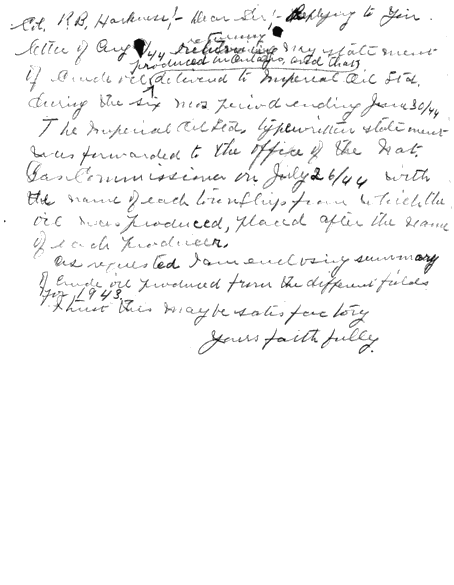 Col. R.B. Harkness,!- Dear Sir!- Replying to Your
letter of Aug /44 returning my statement
produced in Ontario, and that
of Crude oil delivered to Imperial Oil Ltd,
during the six mos period ending June 30/44
The Imperial Oil Ltds, typewritten statement
was forwarded to the office of the Nat.
Gas Commissioner on July 26/44 with
the name of each township from which the
oil was produced, placed after the name
of each producer.
as requested I am enclosing summary
of Crude oil produced from the different fields
for 1943.
I trust this may be satisfactory
Yours faithfully.